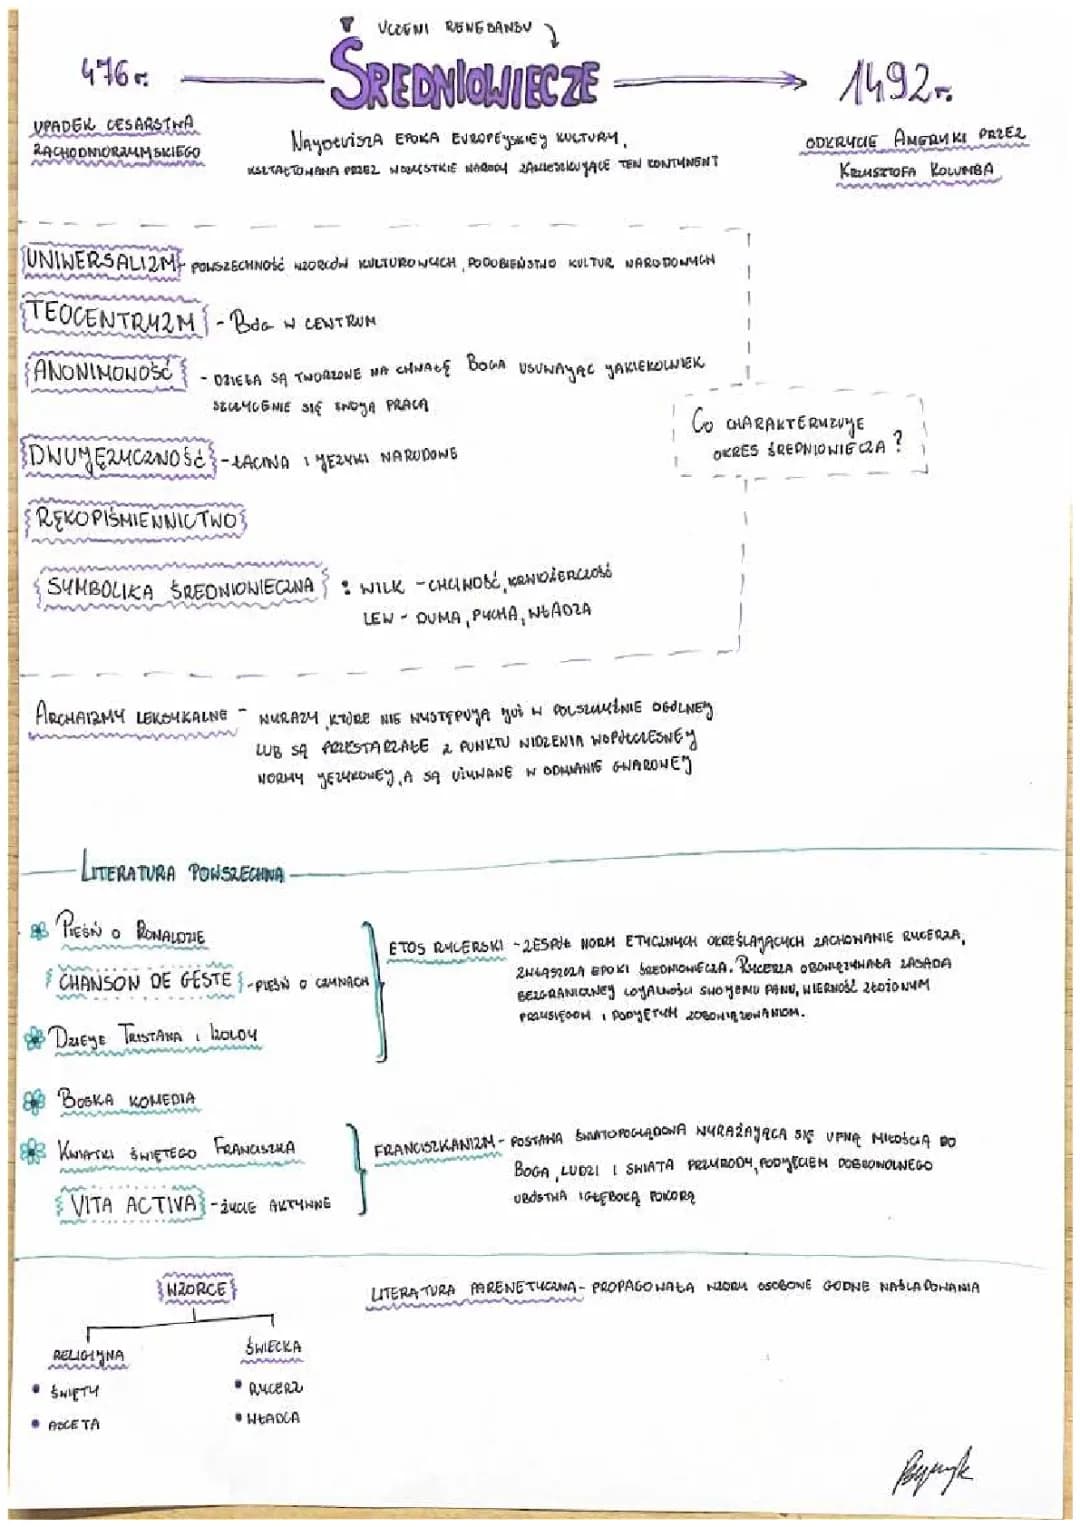 UCZENI RENESANSU
476 r. ŚREDNIOWIECZE 1492 r.
UPADEK CESARSTWA
ZACHODNIORZYMSKIEGO
NAJDŁUŻSZA EPOKA EUROPEJSKIEJ KULTURY,
KSZTAŁTOWANA PRZEZ WSZYSTKIE NARODY ZAMIESZKUJĄCE TEN KONTYNENT
ODKRYCIE AMERYKI PRZEZ
KRZYSZTOFA KOLUMBA
UNIWERSALIZM - POWSZECHNOŚĆ WZORCÓW KULTUROWYCH, PODOBIEŃSTWO KULTUR NARODOWYCH
TEOCENTRYZM - BÓG W CENTRUM
ANONIMOWOŚĆ - DZIEŁA SĄ TWORZONE NA CHWAŁĘ BOGA USUWAJĄC JAKIEKOLWIEK
SZCZYCENIE SIĘ SWOJĄ PRACĄ
CO CHARAKTERYZUJE
OKRES ŚREDNIOWIECZA?
DWUJĘZYCZNOŚĆ - ŁACINA I JĘZYKI NARODOWE
RĘKOPIŚMIENNICTWO
SYMBOLIKA ŚREDNIOWIECZNA : WILK - CHCIWOŚĆ, KRWIOŻERCZOŚĆ
LEW - DUMA, PYCHA, WŁADZA
ARCHAIZMY LEKSYKALNE - WYRAZY, KTÓRE NIE WYSTĘPUJĄ JUŻ W POLSZCZYŹNIE OGÓLNEJ
LUB SĄ PRZESTARZAŁE Z PUNKTU WIDZENIA WSPÓŁCZESNEJ
NORMY JĘZYKOWEJ, A SĄ UŻYWANE W ODMIANIE GWAROWEJ
LITERATURA POWSZECHNA
PIEŚŃ O ROLANDZIE
CHANSON DE GESTE - PIEŚŃ O CZYNACH
DZIEJE TRISTANA I IZOLDY
ETOS RYCERSKI - ZESPÓŁ NORM ETYCZNYCH OKREŚLAJĄCYCH ZACHOWANIE RYCERZA,
ZWŁASZCZA EPOKI ŚREDNIOWIECZA. RYCERZA OBOWIĄZYWAŁA ZASADA
BEZGRANICZNEJ LOJALNOŚCI SWOJEMU PANU, WIERNOŚĆ ZŁOŻONYM
PRZYSIĘGOM I PODJĘTYM ZOBOWIĄZOWANIOM.
BOSKA KOMEDIA
KWIATKI ŚWIĘTEGO FRANCISZKA
VITA ACTIVA - ŻYCIE AKTYWNE
FRANCISZKANIZM - POSTAWA ŚWIATOPOGLĄDOWA WYRAŻAJĄCA SIĘ UFNĄ MIŁOŚCIĄ DO
BOGA, LUDZI I ŚWIATA PRZYRODY, PODJĘCIEM DOBROWOLNEGO
UBÓSTWA I GŁĘBOKĄ POKORĄ
WZORCE
RELIGIJNA
ŚWIĘTY
ASCETA
ŚWIECKA
RYCERZ
WŁADCA
LITERATURA PARENETYCZNA - PROPAGOWAŁA WZORY OSOBOWE GODNE NAŚLADOWANIA